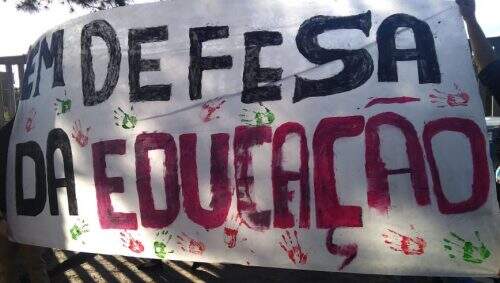 EM DEFESA
DA EDUCAÇÃO